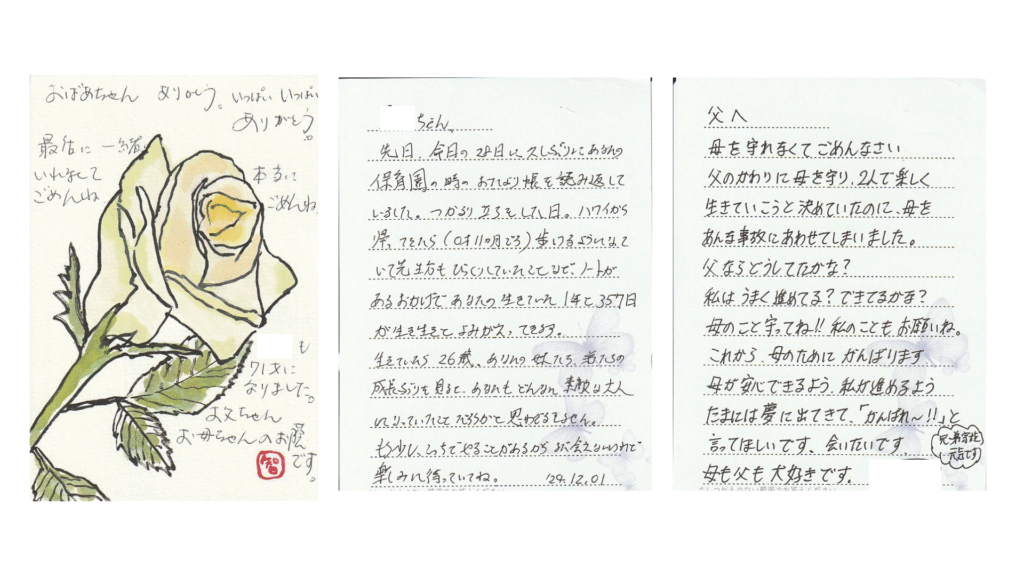 おばあちゃん ありがとう。いっぱい いっぱい
ありがとう。
最后に 一緒に
いれなくて
ごめんね
本当に
ごめんね
も
71才に
なりました。
お父ちゃん
お母ちゃんのお蔭
です。
智
ちゃん、
先日、今日の28日に久しぶりにあなたの
保育園の時のおたより帳を読み返して
いました。つかまり立ちをした日。ハワイから
帰ってきたら(0才11ヶ月ごろ)歩けるようになって
いて先生方もびっくりしていれたことなど、ノートが
あるおかげであなたの生きていた1年と357日
が生き生きとよみがえってきます。
生きていたら26歳、
成長ぶりを見ると、あなたも、どんなに素敵な大人
になっていたことだろうかと思わずるをません。
もう少し、こっちでやることがあるから
楽しみに待っていてね。 '24.12.01
父へ
母を守れなくてごめんなさい
父のかわりに母を守り、2人で楽しく
生きていこうと決めていたのに、母を
あんな事故にあわせてしまいました。
父ならどうしてたかな?
私はうまく進めてる?できてるかな?
母のこと守ってね!!私のこともお願いね。
これから、母のためにがんばります
母が安心できるよう、私が進めるよう
たまには夢に出てきて、「がんばれ〜!!」と
言ってほしいです、会いたいです、
母も父も大好きです。
元気です